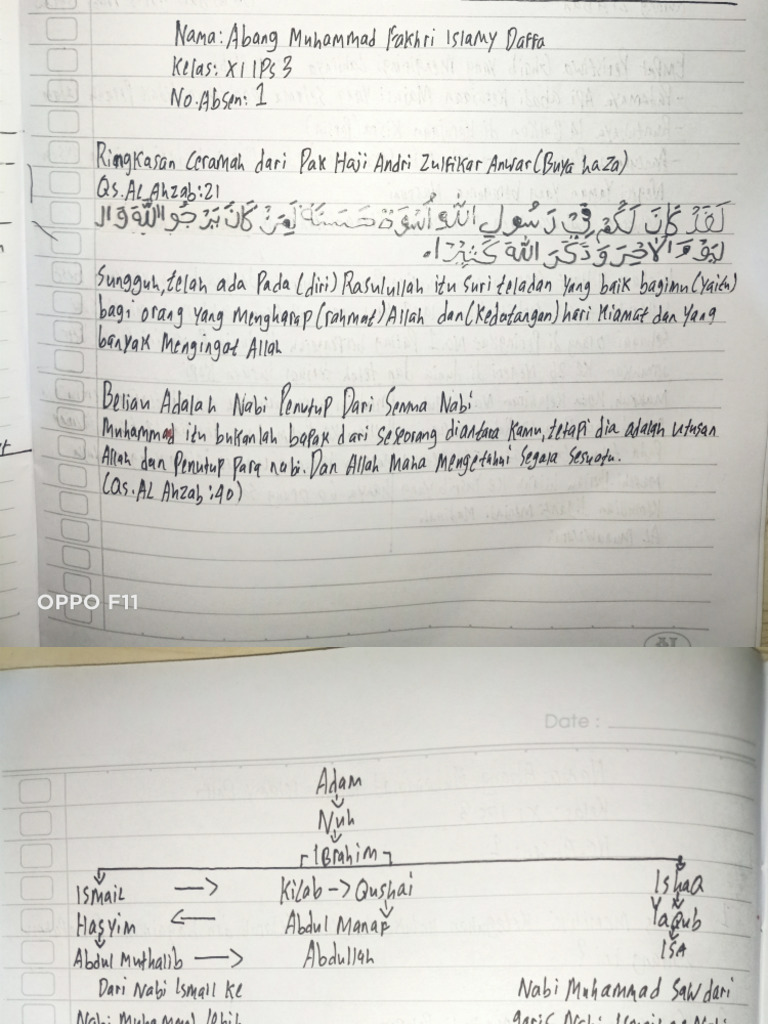 Nama: Abang Muhammad Fakhri Islamy Daffa
Kelas: XI IPS 3
No.Absen: 1
Ringkasan Ceramah dari Pak Haji Andri Zulfikar Anwar (Buya haza)
Qs. AL Ahzab:21
لَقَدْ كَانَ لَكُمْ فِيْ رَسُولِ اللّٰهِ اُسْوَةٌ حَسَنَةٌ لِّمَنْ كَانَ يَرْجُو اللّٰهَ وَ الْ
يَوْمَ الْاٰخِرَ وَ ذَكَرَ اللّٰهَ كَثِيْرًا.
Sungguh, telah ada Pada (diri) Rasulullah itu Suri teladan yang baik bagimu (yaitu)
bagi orang yang Mengharap (rahmat) Allah dan (Kedatangan) hari Kiamat dan Yang
banyak Mengingat Allah
Beliau Adalah Nabi Penutup Dari Semua Nabi
Muhammad itu bukanlah bapak dari seseorang diantara Kamu, tetapi dia adalah utusan
Allah dan Penutup Para nabi. Dan Allah Maha Mengetahui Segala Sesuatu.
(Qs. AL Ahzab :40)
OPPO F11
Date :
Adam
Nuh
Ibrahim
Ismail → Kilab → Qushai Ishaq
Hasyim ← Abdul Manaf Yaqub
Abdul Muthalib → Abdullah ISA
Dari Nabi Ismail Ke Nabi Muhammad Saw dari
Nabi Muhammad lebih garis Nabi